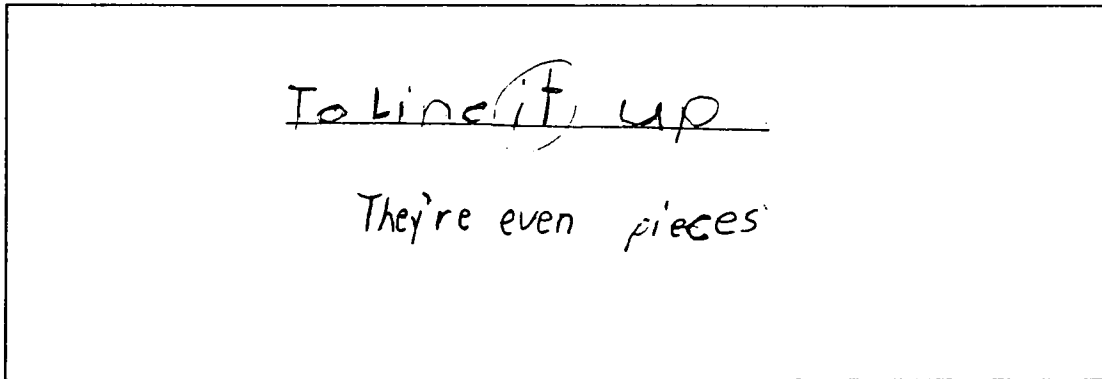 To Line it up
They're even pieces